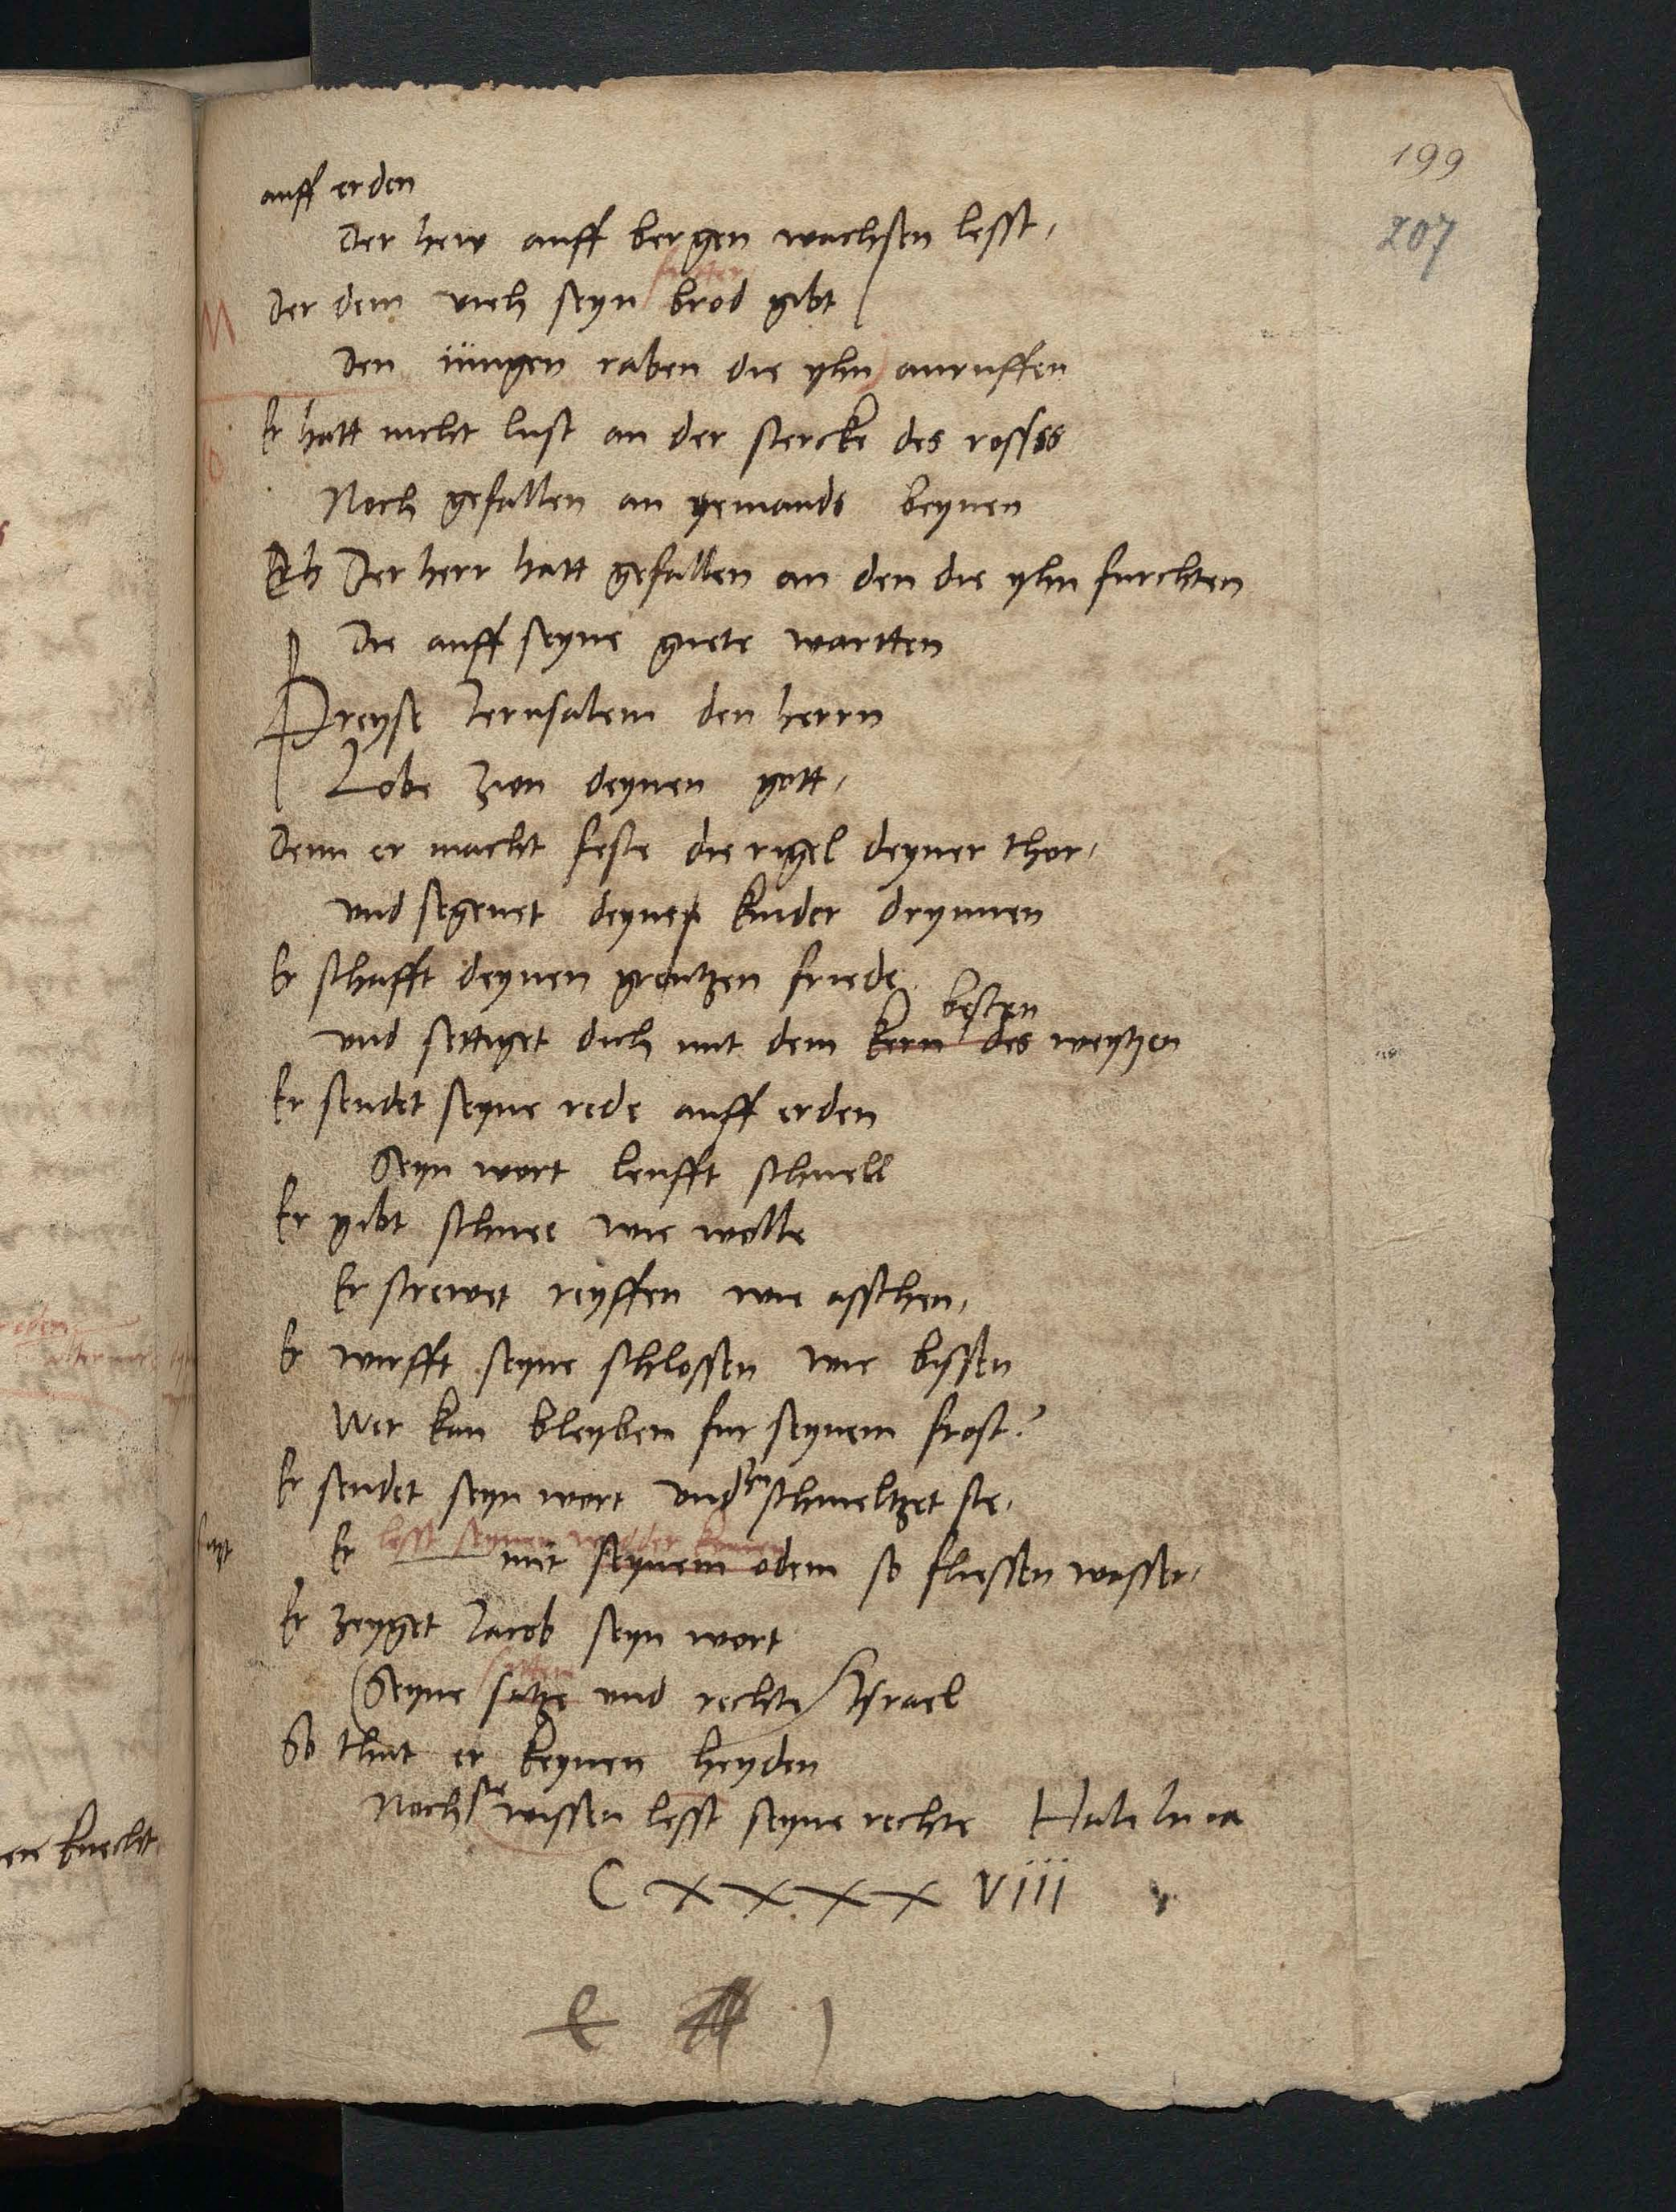 199
207
auff erden
Der hew auff bergen wachsen lesst,
futter
Der dem vieh seyn brod gibt
Den iungen raben die yhn anruffen
Er hatt nicht lust an der stercke des rossss
Noch gefallen an yemands beynen
Der herr hatt gefallen an den die yhn furchten
Die auff seyne guete wartten
Preyse Jerusalem den herrn
Lobe Zion deynen gott,
Denn er macht feste die rigel deyner thor,
und segenet deyne kinder drynnen
Er schafft deynen grentzen friede
besten
und settiget dich mit dem kern des weytzen
Er sendet seyne rede auff erden
Seyn wort leufft schnell
Er gibt schnee wie wolle
Er strewet reyffen wie asschen,
Er wirfft seyne schlossen wie bissen
Wer kan bleyben fur seynem frost?
Er sendet seyn wort und zu schmeltzet sie,
lesst seynen
Er mit seynem odem so fliessen wasser,
Er zeyget Jacob seyn wort
sitten
Seyne satze und rechte Israel
So thut er keynen heyden
Noch sie wissen lesst seyne rechte Haleluia
C x x x x viii
ene knecht